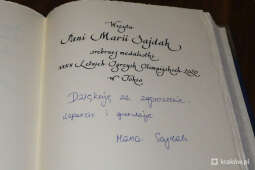 Wizyta
Pani Marii Sajdak
srebrnej medalistki
XXXII Letnich Igrzysk Olimpijskich 2020
w Tokio
Dziękuję za zaproszenie,
wsparcie i gratulacje
Maria Sajdak
kraków.pl